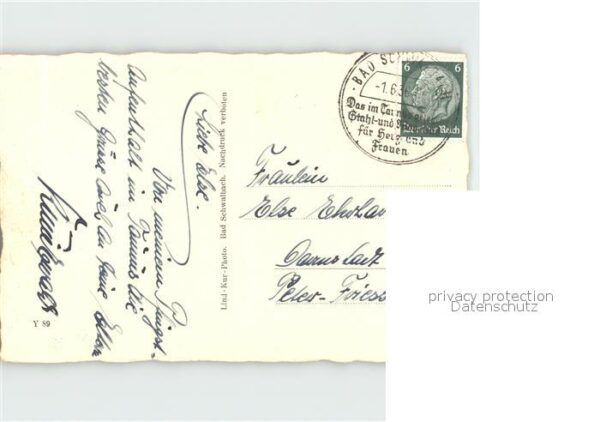 Liebe Else.
Von meinem Pfingst-
aufenthalt im Taunus die
besten Grüsse auch an Deine Eltern
Y 89
Lind-Kur-Photo. Bad Schwalbach. Nachdruck verboten
BAD
-1.6.3
Das im
Stahl- und
für Herz und
Frauen
6 6
Deutsches Reich
Fräulein
Else
Darmstadt
Peter-
privacy protection
Datenschutz